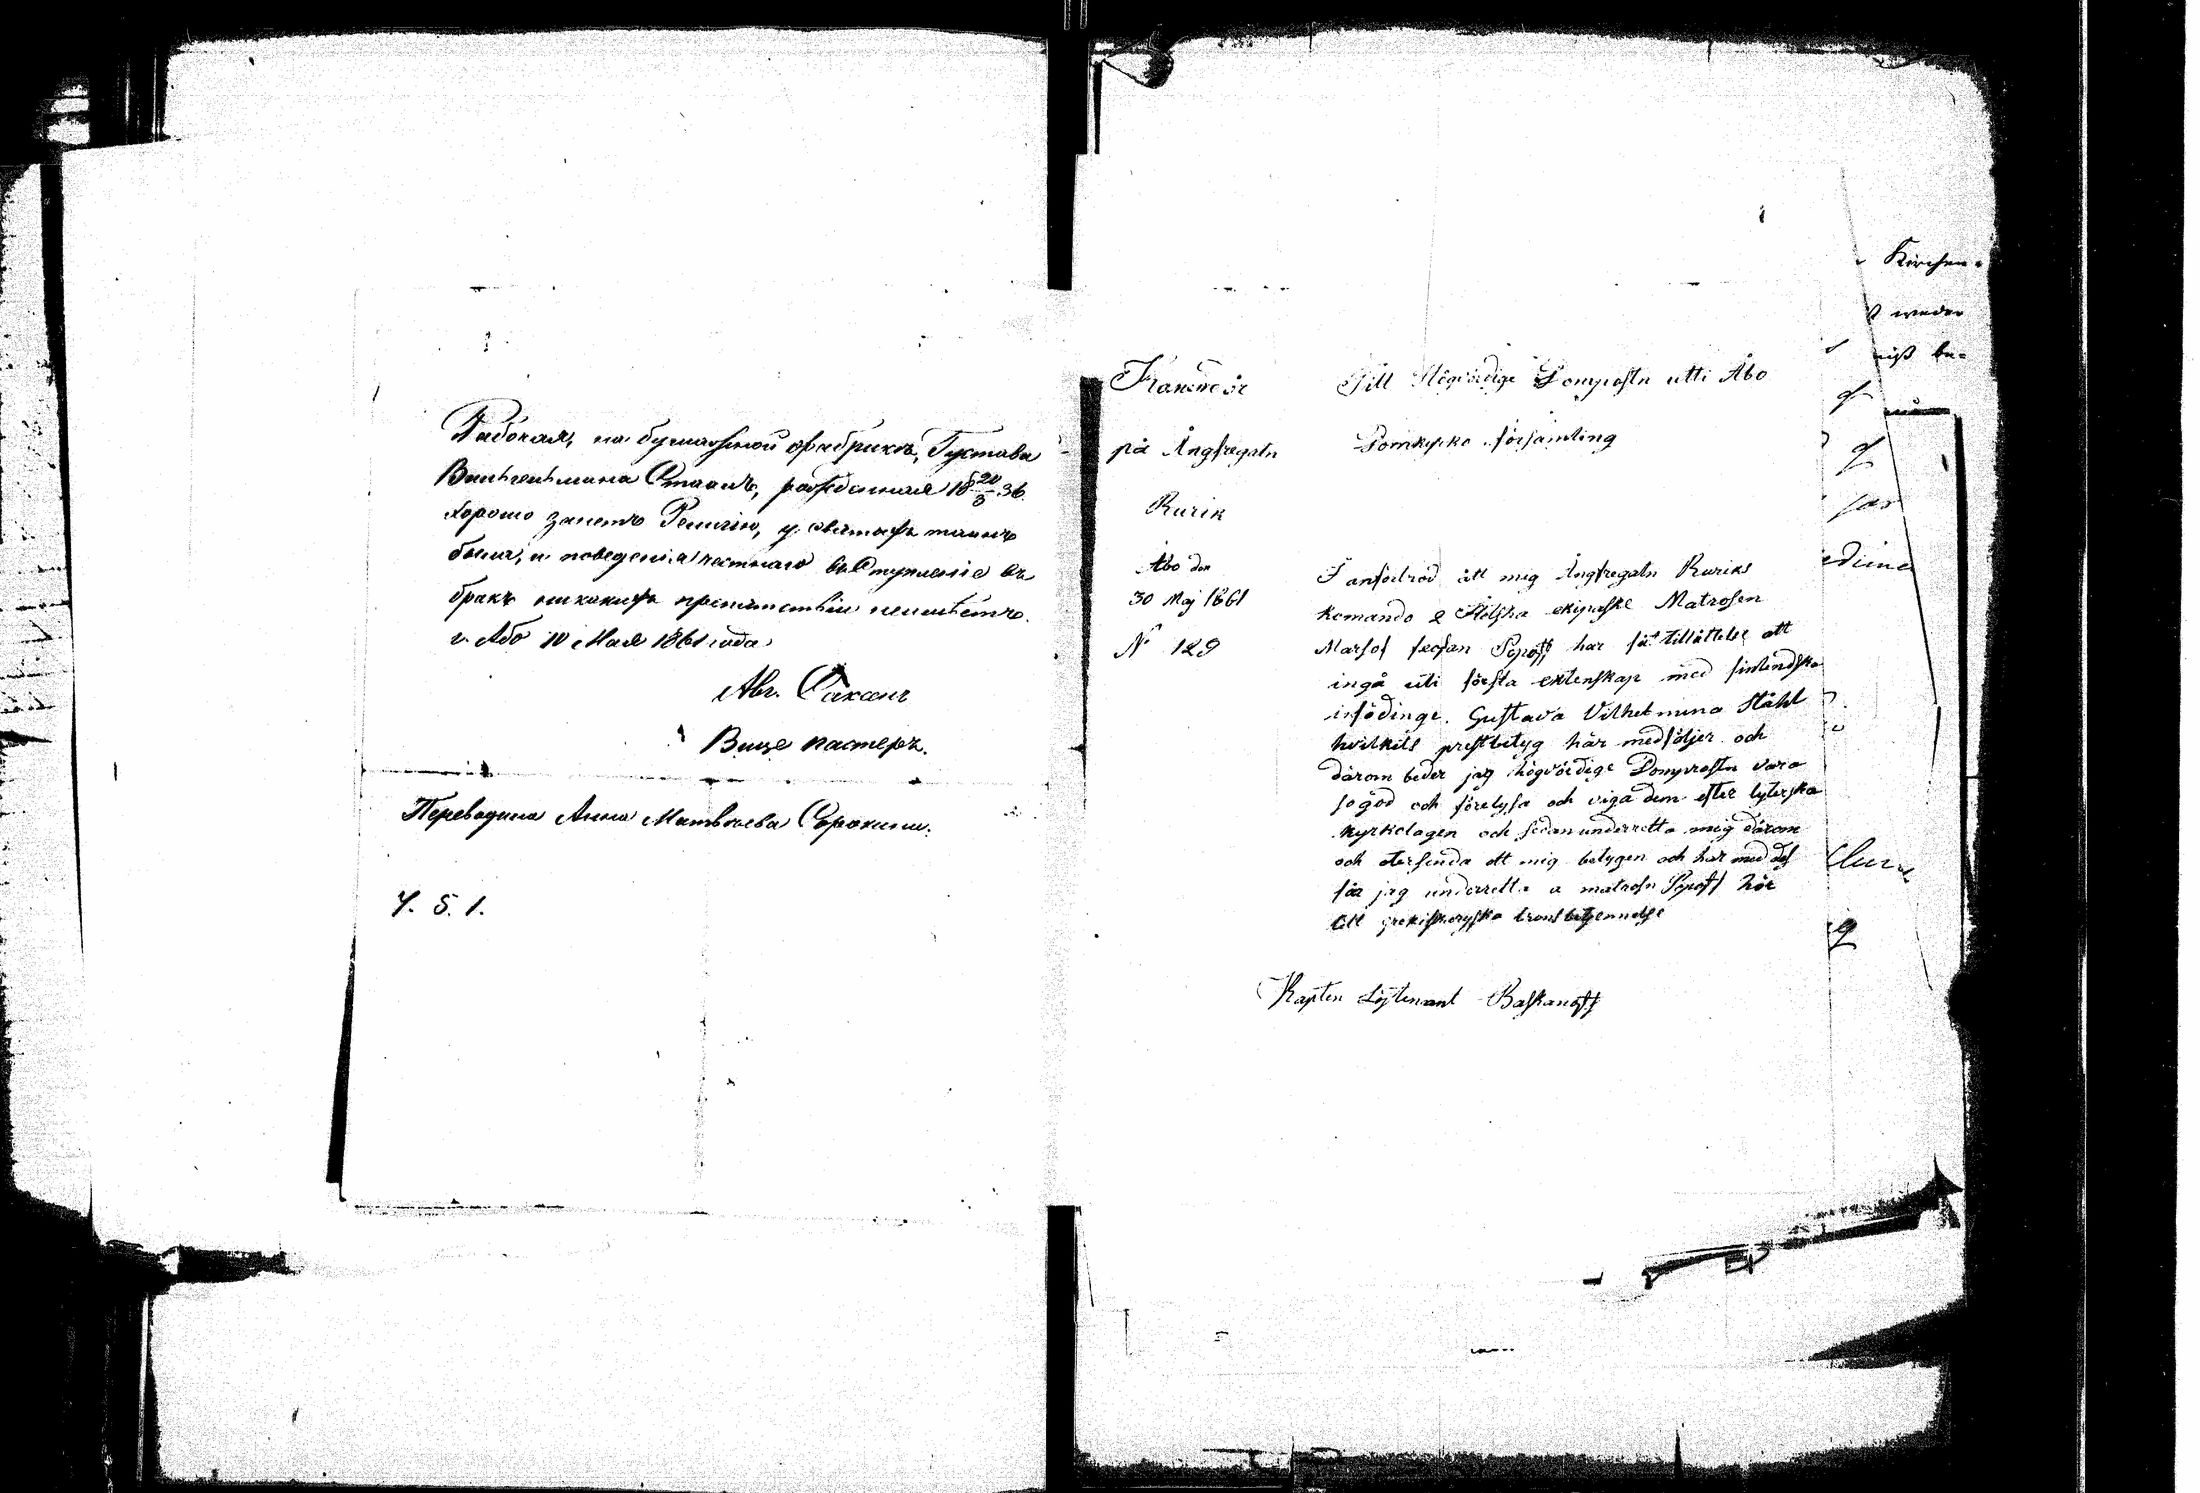 Рабочая, на бумажной фабрикѣ, Густава
Вильгельмина Сталь, рожденная 18 20/3 36.
хорошо знаетъ Религію, у святыхъ таинъ
была, и поведенія честнаго въ Вступленіе въ
бракъ никакихъ препятствіи неимѣетъ.
г. Або 10 Мая 1861 года.
Авг.
Вице пастеръ.
Переводила Анна Матвѣева Сорокина.
4. 5. 1.
på Ångfregatn
Rurik
Åbo den
30 Maj 1861
N 129
Till Högvördige Domprostn utti Åbo
Domkyrko församling
I anförtrod åt mig Ångfregatn Ruriks
komando 2 Flotska ekipaske Matrosen
Marsof fecfan Popoff har fåt tillåttelse att
ingå uti första ektenskap med finlendska
infödinge. Gustava Vilhelmina Ståhl
hvilkits prestbetyg här medföljer och
därom beder jag högvördige Domprostn vara
so god och förelysa och viga dem efter lyterska
kyrkolagen och sedan underretta mig därom
och otersenda ott mig betygen och har med det
får jag underretta a matrosn Popoff hör
till grekiskryska tronsbetjennelse
Kapten Löjtenant Baskanoff
Kirchen-
weder
niß be-